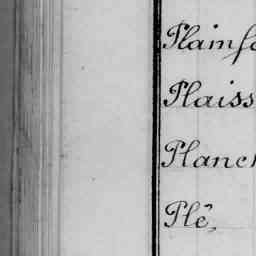 Plainfa
Plaiss
Planch
Plé,